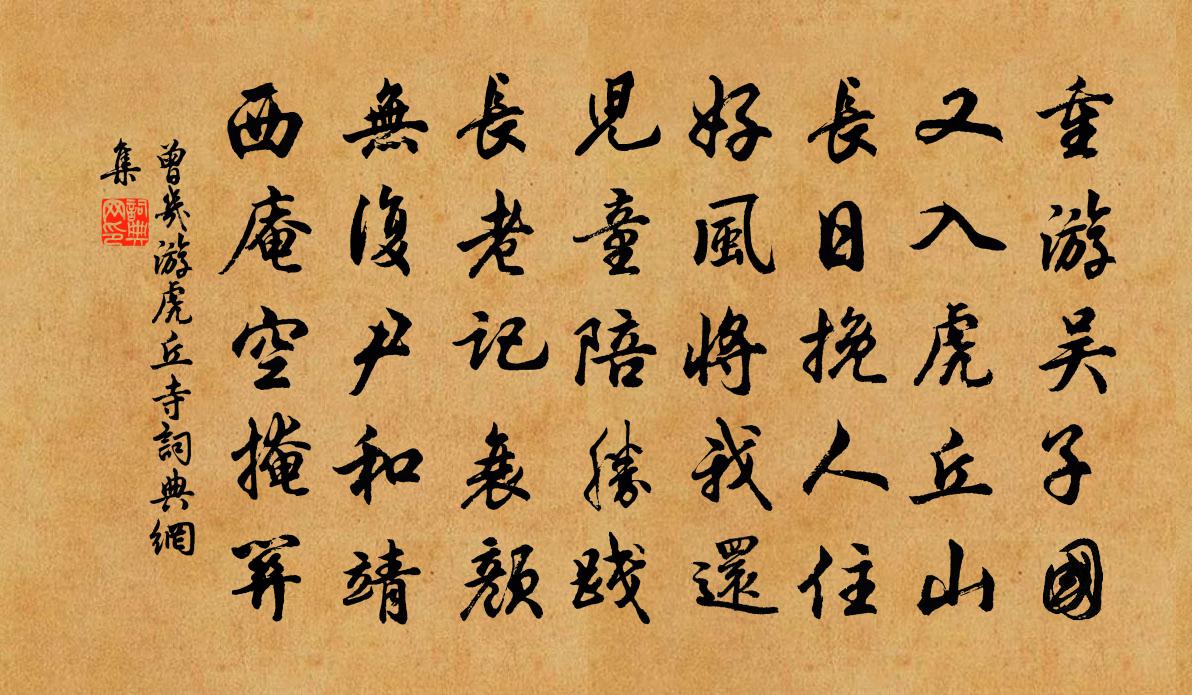 重游吴子國
又入虎丘山
長日挽人住
好風將我還
兒童陪勝踐
長老記衰顏
無復尹和靖
西庵空掩關
曾幾游虎丘寺詞典網
集
詞典
网印